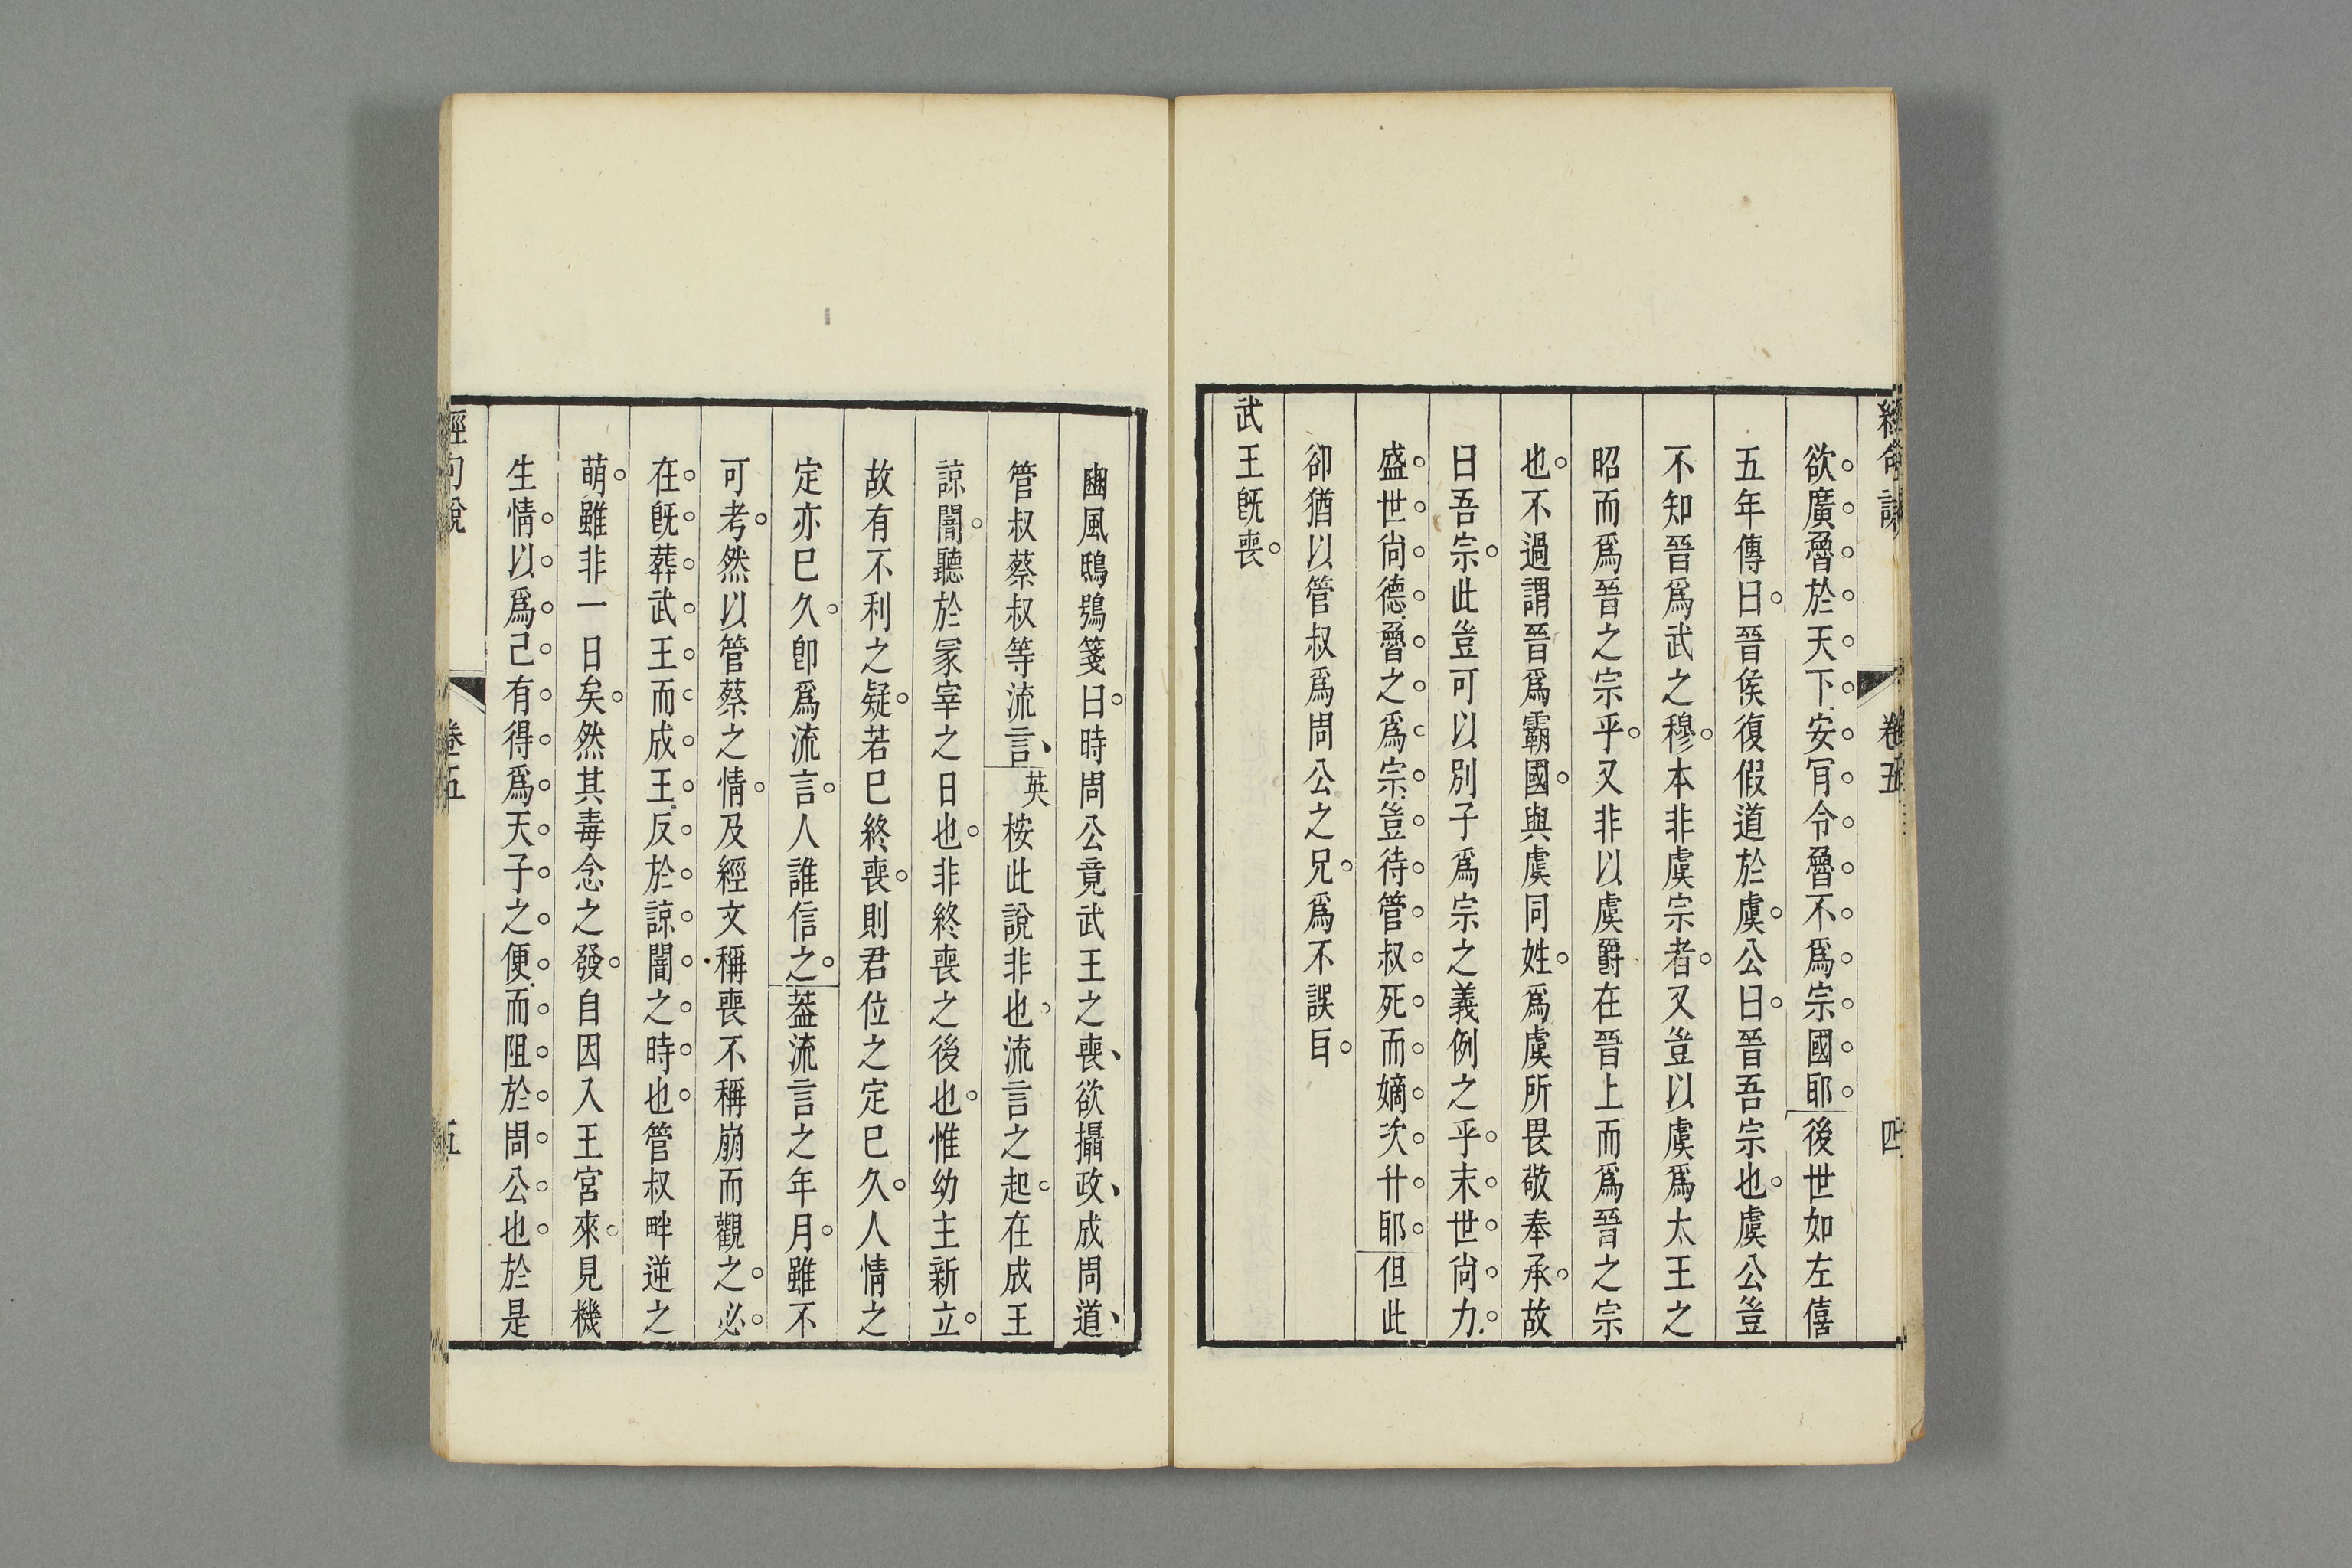 經句說 卷五 四
欲廣魯於天下安肎令魯不爲宗國耶後世如左僖
五年傳曰晉侯復假道於虞公曰晉吾宗也虞公豈
不知晉爲武之穆本非虞宗者又豈以虞爲太王之
昭而爲晉之宗乎又非以虞爵在晉上而爲晉之宗
也不過謂晉爲霸國與虞同姓爲虞所畏敬奉承故
曰吾宗此豈可以別子爲宗之義例之乎末世尙力
盛世尙德魯之爲宗豈待管叔死而嫡次升耶但此
卻猶以管叔爲周公之兄爲不誤耳
武王旣喪
豳風鴟鴞箋曰時周公竟武王之喪欲攝政成周道
管叔蔡叔等流言英桉此說非也流言之起在成王
諒闇聽於冢宰之日也非終喪之後也惟幼主新立
故有不利之疑若已終喪則君位之定已久人情之
定亦已久卽爲流言人誰信之葢流言之年月雖不
可考然以管蔡之情及經文稱喪不稱崩而觀之必
在旣葬武王而成王反於諒闇之時也管叔畔逆之
萌雖非一日矣然其毒念之發自因入王宮來見機
生情以爲己有得爲天子之便而阻於周公也於是
經句說 卷五 五